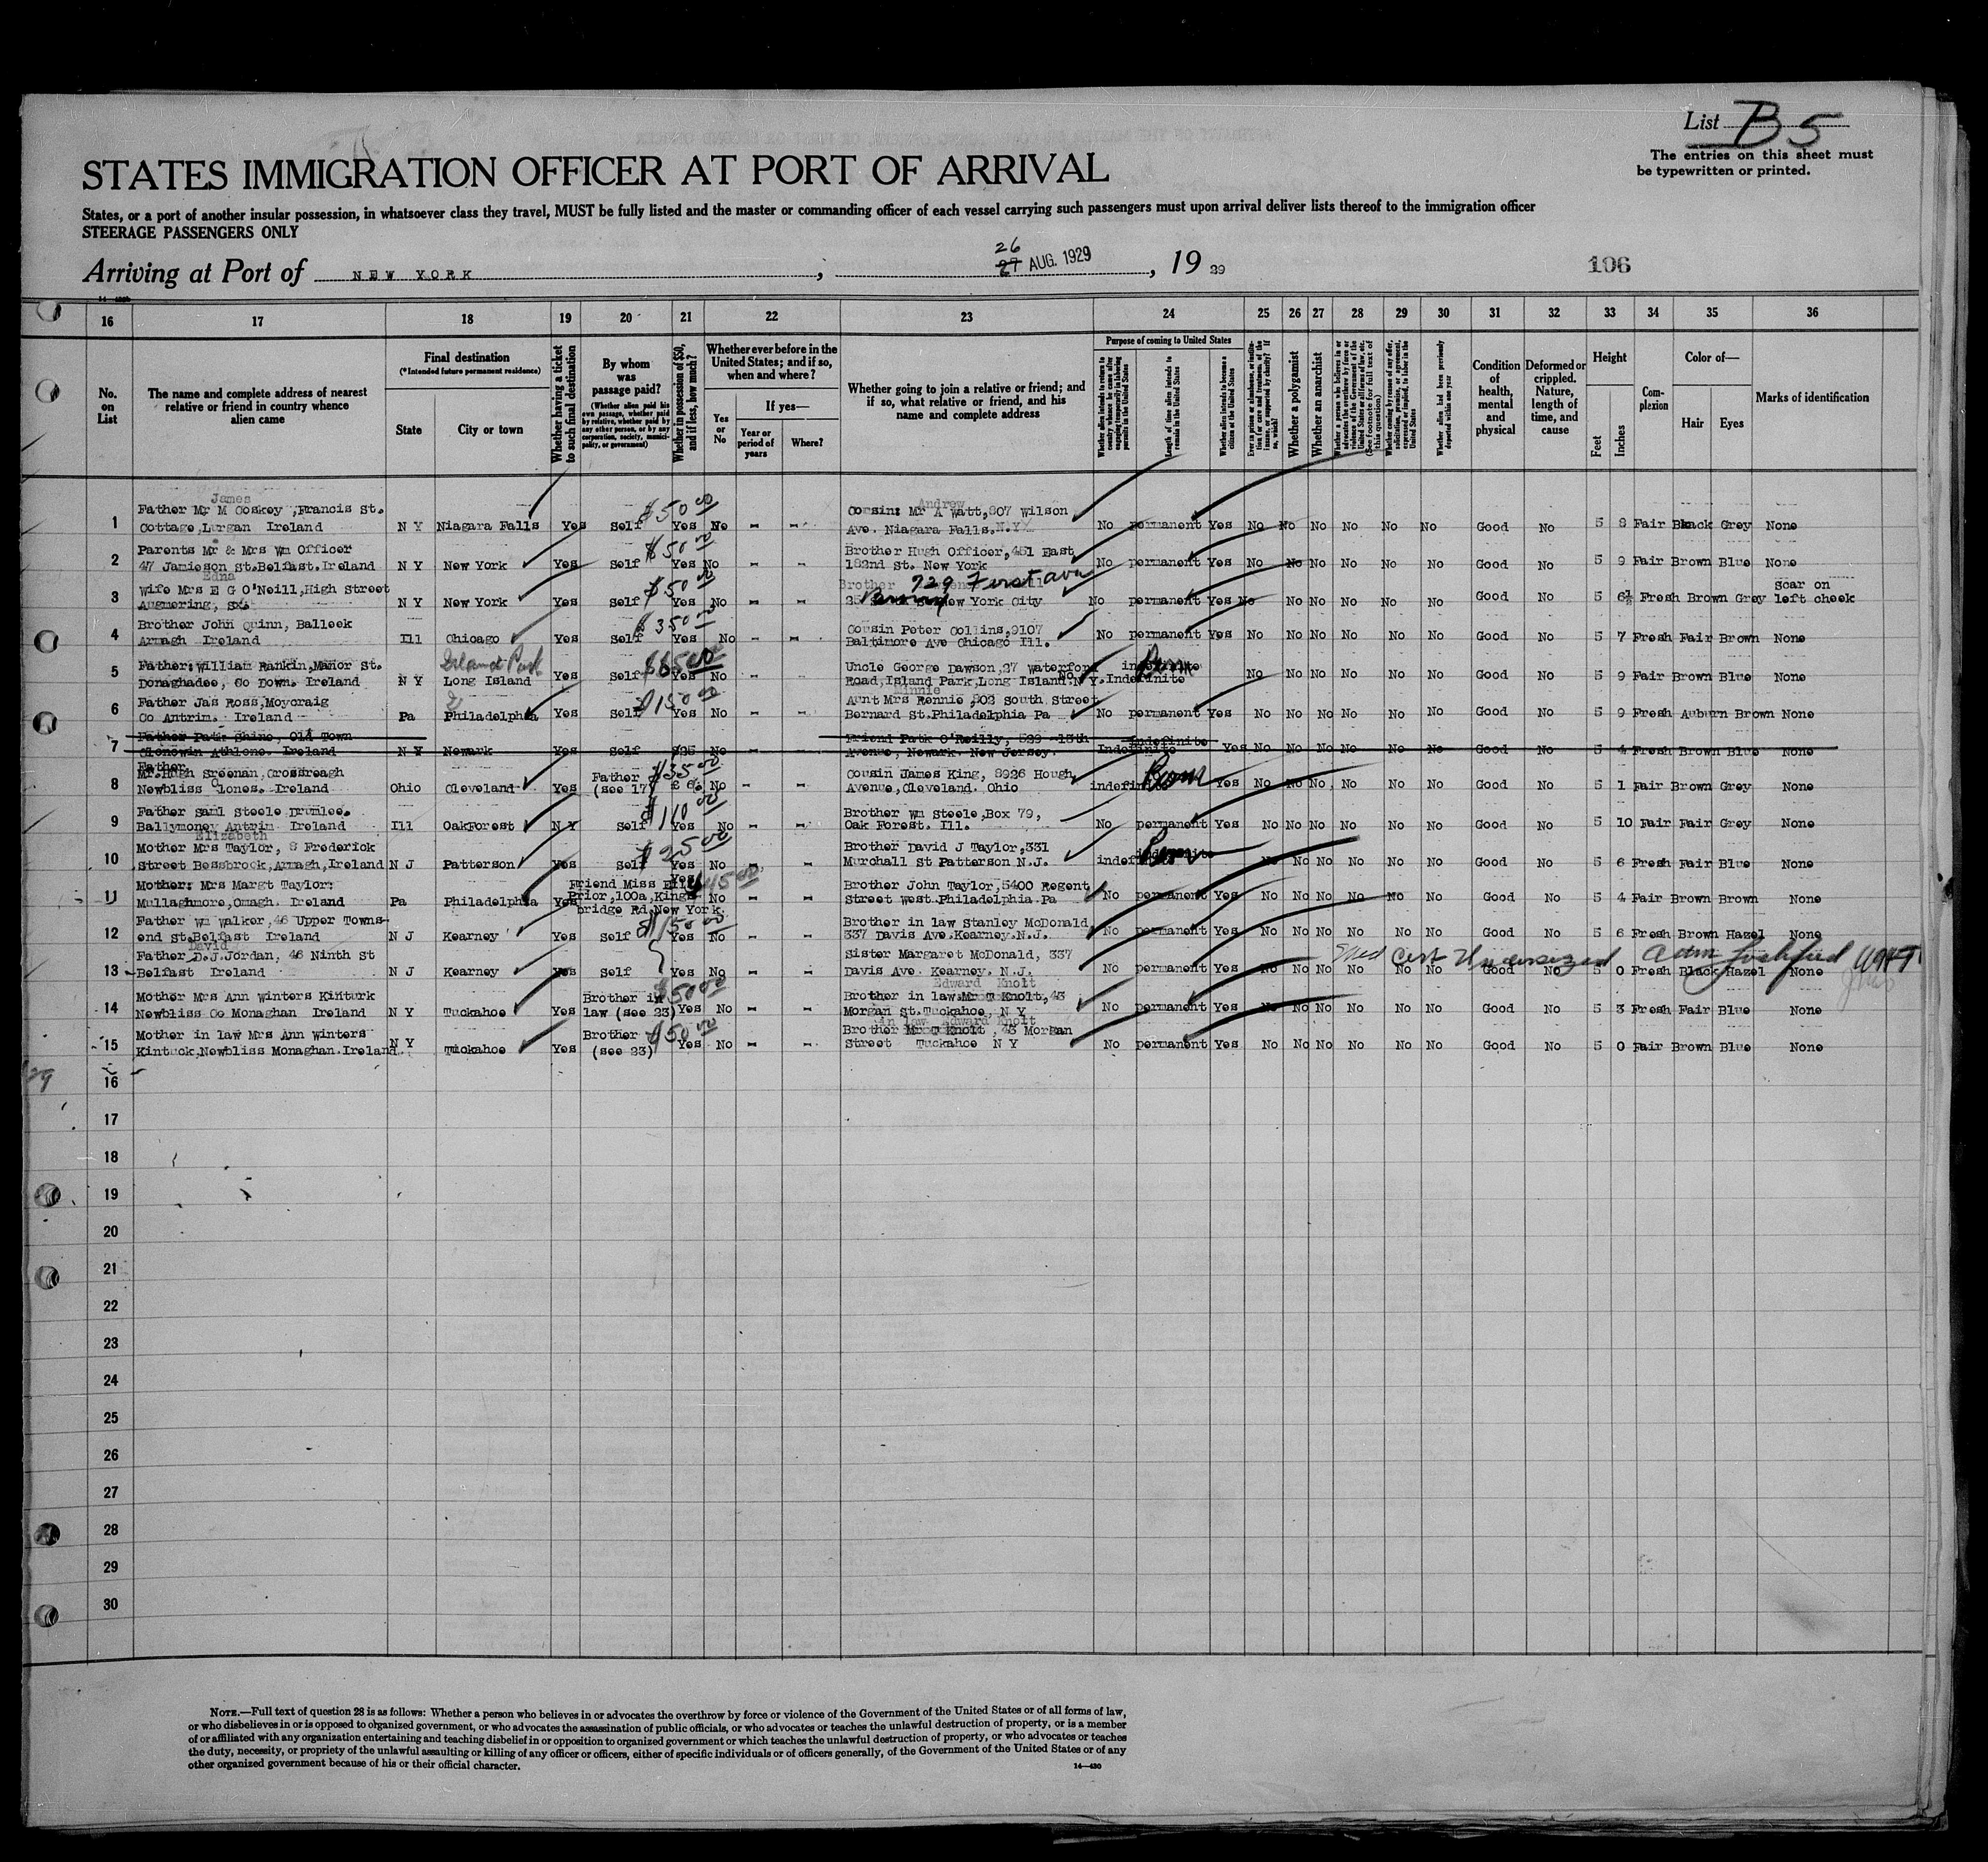 List B 5
The entries on this sheet must
be typewritten or printed.
STATES IMMIGRATION OFFICER AT PORT OF ARRIVAL
States, or a port of another insular possession, in whatsoever class they travel, MUST be fully listed and the master or commanding officer of each vessel carrying such passengers must upon arrival deliver lists thereof to the immigration officer
STEERAGE PASSENGERS ONLY
Arriving at Port of NEW YORK, 26 27 AUG. 1929, 19 29
106
16 17 18 19 20 21 22 23 24 25 26 27 28 29 30 31 32 33 34 35 36
No. on List
The name and complete address of nearest relative or friend in country whence alien came
Final destination
(*Intended future permanent residence)
State
City or town
Whether having a ticket to such final destination
By whom was passage paid?
(Whether alien paid his own passage, whether paid by relative, whether paid by any other person, or by any corporation, society, municipality, or government)
Whether in possession of $50, and if less, how much?
Whether ever before in the United States; and if so, when and where?
Yes or No
If yes—
Year or period of years
Where?
Whether going to join a relative or friend; and if so, what relative or friend, and his name and complete address
Purpose of coming to United States
Length of time alien intends to remain in the United States
Whether alien intends to become a citizen of the United States
Whether a polygamist
Whether an anarchist
Whether alien had been previously deported within one year
Condition of health, mental and physical
Deformed or crippled. Nature, length of time, and cause
Height
Feet
Inches
Complexion
Color of—
Hair
Eyes
Marks of identification
James Andrew
1 Father Mr M Coskey, Francis St. Cousin: Mr A Watt, 807 Wilson
Cottage, Lurgan Ireland N Y Niagara Falls Yes Self $50.00 Yes No - - Ave. Niagara Falls. N.Y No permanent Yes No No No No No No Good No 5 8 Fair Black Grey None
2 Parents Mr & Mrs Wm Officer Brother Hugh Officer, 451 East
47 Jamieson St. Belfast. Ireland N Y New York Yes Self $50.00 Yes No - - 182nd St. New York No permanent Yes No No No No No No Good No 5 9 Fair Brown Blue None
Edna
3 Wife Mrs E G O'Neill, High Street Brother 729 First ave scar on
Augmering, N Y New York Yes Self $50.00 Yes No - - New York City No permanent Yes No No No No No No Good No 5 6½ Fresh Brown Grey left cheek
4 Brother John Quinn, Balleek Cousin Peter Collins, 9107
Armagh Ireland Ill Chicago Yes Self $350.00 Yes No - - Baltimore Ave Chicago Ill. No permanent Yes No No No No No No Good No 5 7 Fresh Fair Brown None
5 Father: William Rankin, Manor St. Island Park Uncle George Dawson, 27 Waterford indefinite Perm
Donaghadee, Co Down. Ireland N Y Long Island Yes Self Yes No - - Road, Island Park, Long Island. N Y. No Indefinite No No No No No No Good No 5 9 Fair Brown Blue None
Minnie
6 Father Jas Ross, Moycraig Aunt Mrs Rennie, 902 South Street
Co Antrim. Ireland Pa Philadelphia Yes Self $150.00 Yes No - - Bernard St. Philadelphia Pa No permanent Yes No No No No No No Good No 5 9 Fresh Auburn Brown None
7 Father Patk Shine, Old Town Friend Patk O'Reilly, 529 -15th Indefinite
Clonowin Athlone. Ireland N Y Newark Yes Self $25 No Avenue, Newark. New Jersey. Indefinite Yes No No No No No No Good No 5 4 Fresh Brown Blue None
Father
8 Mr. Hugh Sreenan, Crossreagh Father $35.00 Cousin James King, 8926 Hough Perm
Newbliss Clones. Ireland Ohio Cleveland Yes (see 17) No - - Avenue, Cleveland. Ohio indefinite Yes No No No No No No Good No 5 1 Fair Brown Grey None
9 Father Saml Steele Drumlee. Brother Wm Steele, Box 79,
Ballymoney Antrim Ireland Ill OakForest N Y Self $110.00 Yes No - - Oak Forest. Ill. No permanent Yes No No No No No No Good No 5 10 Fair Fair Grey None
Elizabeth
10 Mother Mrs Taylor, 8 Frederick Brother David J Taylor, 331 indefinite Perm
Street Bessbrook, Armagh, Ireland N J Patterson Yes Self $25.00 Yes No - - Murchall St Patterson N.J. indefinite No No No No No No Good No 5 6 Fresh Fair Blue None
11 Mother: Mrs Margt Taylor: Friend Miss Yes $45.00 Brother John Taylor, 5400 Regent
Mullaghmore, Omagh. Ireland Pa Philadelphia Yes Prior, 100a, Kings No - - Street West. Philadelphia. Pa No permanent Yes No No No No No No Good No 5 4 Fair Brown Brown None
bridge Rd. New York
12 Father Wm Walker, 46 Upper Towns- Brother in law Stanley McDonald
end St. Belfast Ireland N J Kearney Yes Self $150.00 Yes No - - 337 Davis Ave. Kearney. N.J. No permanent Yes No No No No No No Good No 5 6 Fresh Brown Hazel None
David
13 Father D.J. Jordan, 46 Ninth St Sister Margaret McDonald, 337 Med Cert Undersized
Belfast Ireland N J Kearney Yes Self Yes No - - Davis Ave. Kearney. N.J. No permanent Yes No No No No No No Good No 5 0 Fresh Black Hazel None
Edward Knolt
14 Mother Mrs Ann Winters Kinturk Brother in $50.00 Brother in law. Mr T Knolt, 43
Newbliss Co Monaghan Ireland N Y Tuckahoe Yes law (see 23) Yes No - - Morgan St. Tuckahoe, N Y No permanent Yes No No No No No No Good No 5 3 Fresh Fair Blue None
in law Edward Knolt
15 Mother in law Mrs Ann Winters Brother $50.00 Brother Mr T Knolt, 43 Morgan
Kintuck, Newbliss Monaghan. Ireland N Y Tuckahoe Yes (see 23) Yes No - - Street Tuckahoe N Y No permanent Yes No No No No No No Good No 5 0 Fair Brown Blue None
16
17
18
19
20
21
22
23
24
25
26
27
28
29
30
NOTE.—Full text of question 28 is as follows: Whether a person who believes in or advocates the overthrow by force or violence of the Government of the United States or of all forms of law,
or who disbelieves in or is opposed to organized government, or who advocates the assassination of public officials, or who advocates or teaches the unlawful destruction of property, or is a member
of or affiliated with any organization entertaining and teaching disbelief in or opposition to organized government or which teaches the unlawful destruction of property, or who advocates or teaches
the duty, necessity, or propriety of the unlawful assaulting or killing of any officer or officers, either of specific individuals or of officers generally, of the Government of the United States or of any
other organized government because of his or their official character.
14—430